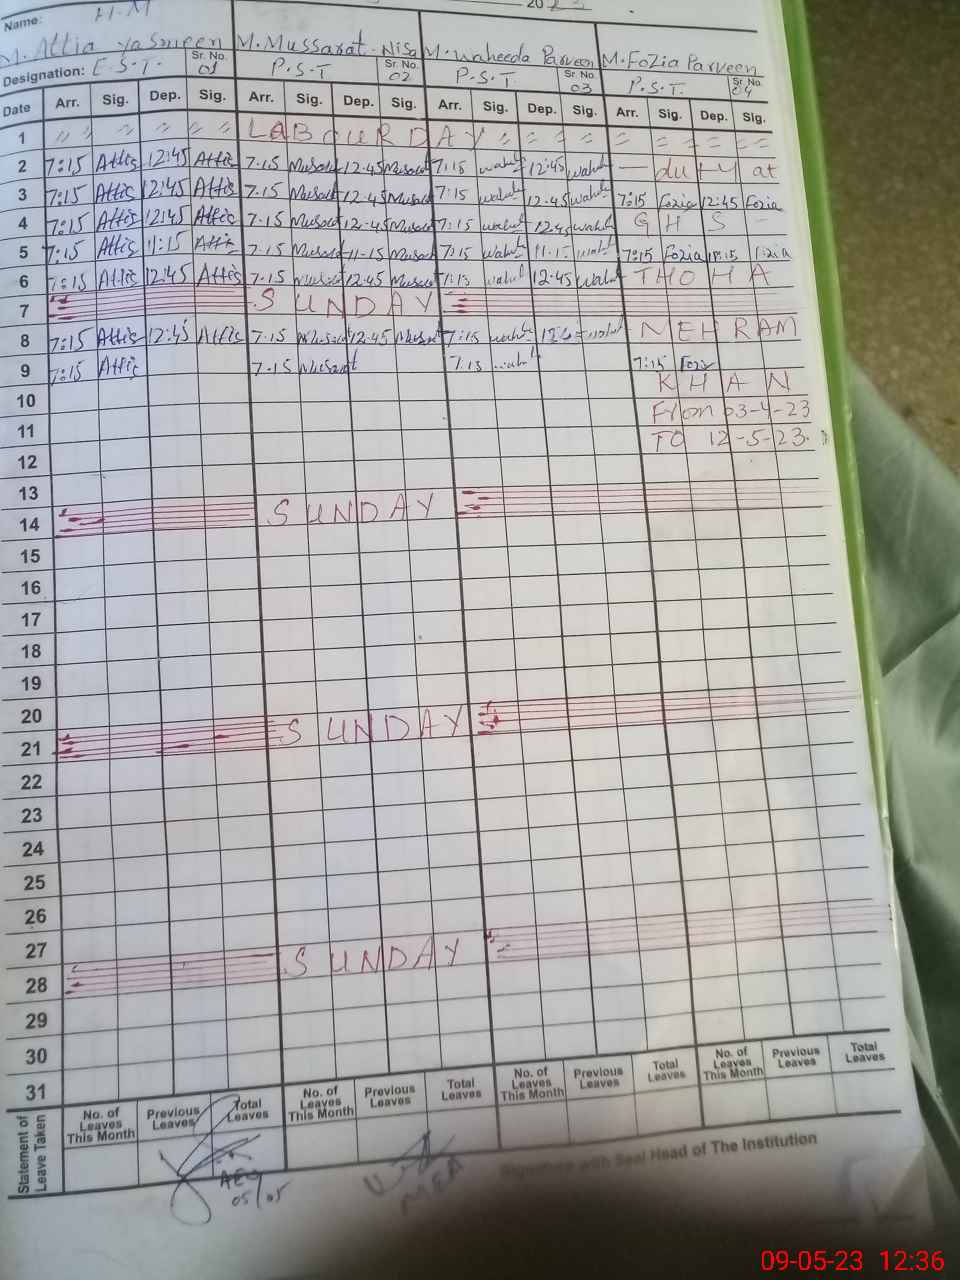 20
Name: H.M
M. Attia Yasmeen M. Mussarat-Nisa M. Waheeda Parveen M. Fozia Parveen
Designation: E.S.T. Sr. No. 01 P.S.T Sr. No. 02 P.S.T Sr. No. 03 P.S.T. Sr. No. 04
Date Arr. Sig. Dep. Sig. Arr. Sig. Dep. Sig. Arr. Sig. Dep. Sig. Arr. Sig. Dep. Sig.
1 〃 〃 〃 〃 〃 LABOUR DAY 〃 = = = = = = =
2 7:15 Attia 12:45 Attia 7.15 Musarat 12.45 Musarat 7:15 12:45 — duty at
3 7:15 Attia 12:45 Attia 7.15 Musarat 12.45 Musarat 7:15 12:45 7:15 Fozia 12:45 Fozia
4 7:15 Attia 12:45 Attia 7.15 Musarat 12.45 Musarat 7:15 12:45 G H S —
5 7:15 Attia 11:15 Attia 7.15 Musarat 11.15 Musarat 7:15 11:15 7:15 Fozia Fozia
6 7:15 Attia 12:45 Attia 7.15 Musarat 12.45 Musarat 7:15 12:45 THOHA
7 SUNDAY
8 7:15 Attia 12:45 Attia 7.15 Musarat 12.45 Musarat 7:15 MEHRAM
9 7:15 Attia 7.15 Musarat 7:15 7:15 Fozia
KHAN
10
From 03-4-23
11
TO 12-5-23.
12
13
14 SUNDAY
15
16
17
18
19
20
21 SUNDAY
22
23
24
25
26
27
28 SUNDAY
29
30
31
Statement of Leave Taken
No. of Leaves This Month Previous Leaves Total Leaves No. of Leaves This Month Previous Leaves Total Leaves No. of Leaves This Month Previous Leaves Total Leaves No. of Leaves This Month Previous Leaves Total Leaves
AEO
05/05
MEA
Signature with Seal Head of The Institution
09-05-23 12:36